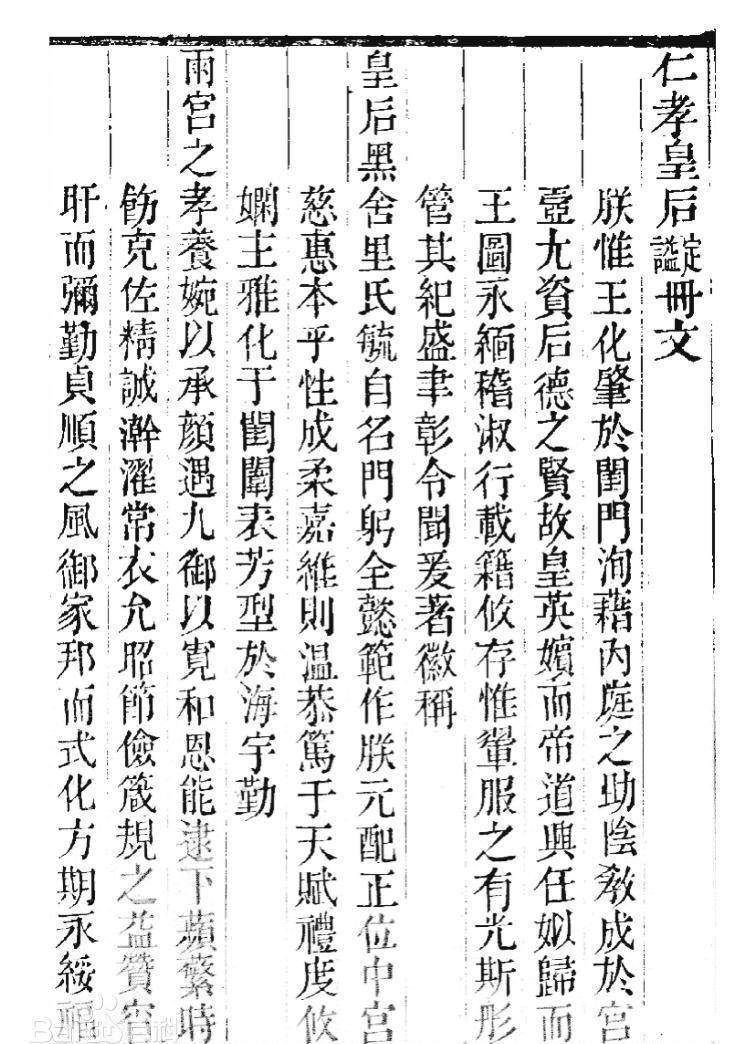 仁孝皇后諡冊文
朕惟王化肇於閨門洵藉內庭之助陰教成於宮
壼尢資后德之賢故皇英嬪而帝道興任姒歸而
王圖永緬稽淑行載籍攸存惟翬服之有光斯彤
管其紀盛聿彰令聞爰著徽稱
皇后黑舍里氏毓自名門躬全懿範作朕元配正位中宮
慈惠本乎性成柔嘉維則温恭篤于天賦禮度攸
嫻王雅化于閨闈表芳型於海宇勤
兩宮之孝養婉以承顏遇九御以寬和恩能逮下蘋蘩時
飭克佐精誠澣濯常衣允昭節儉箴規之益贊宵
旰而彌勤貞順之風御家邦而式化方期永綏福
Baidu百科